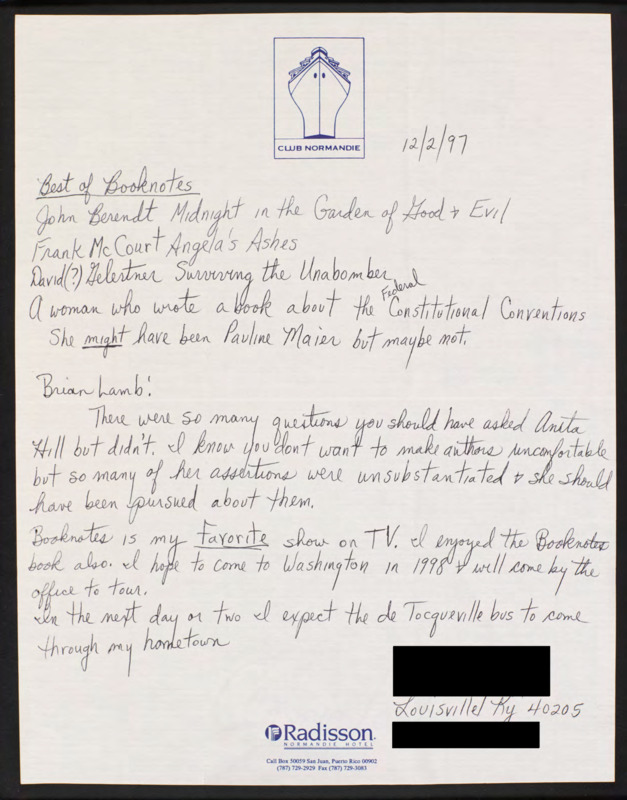 CLUB NORMANDIE
12/2/97
Best of Booknotes
John Berendt Midnight in the Garden of Good & Evil
Frank McCourt Angela's Ashes
David(?) Gelertner Surviving the Unabomber
A woman who wrote a book about the Federal Constitutional Conventions
She might have been Pauline Maier but maybe not.
Brian Lamb:
There were so many questions you should have asked Anita
Hill but didn't. I know you dont want to make authors uncomfortable
but so many of her assertions were unsubstantiated & she should
have been pursued about them.
Booknotes is my favorite show on TV. I enjoyed the Booknotes
book also. I hope to come to Washington in 1998 & will come by the
office to tour.
In the next day or two I expect the de Tocqueville bus to come
through my hometown
Louisville Ky 40205
Radisson
NORMANDIE HOTEL
Call Box 50059 San Juan, Puerto Rico 00902
(787) 729-2929 Fax (787) 729-3083